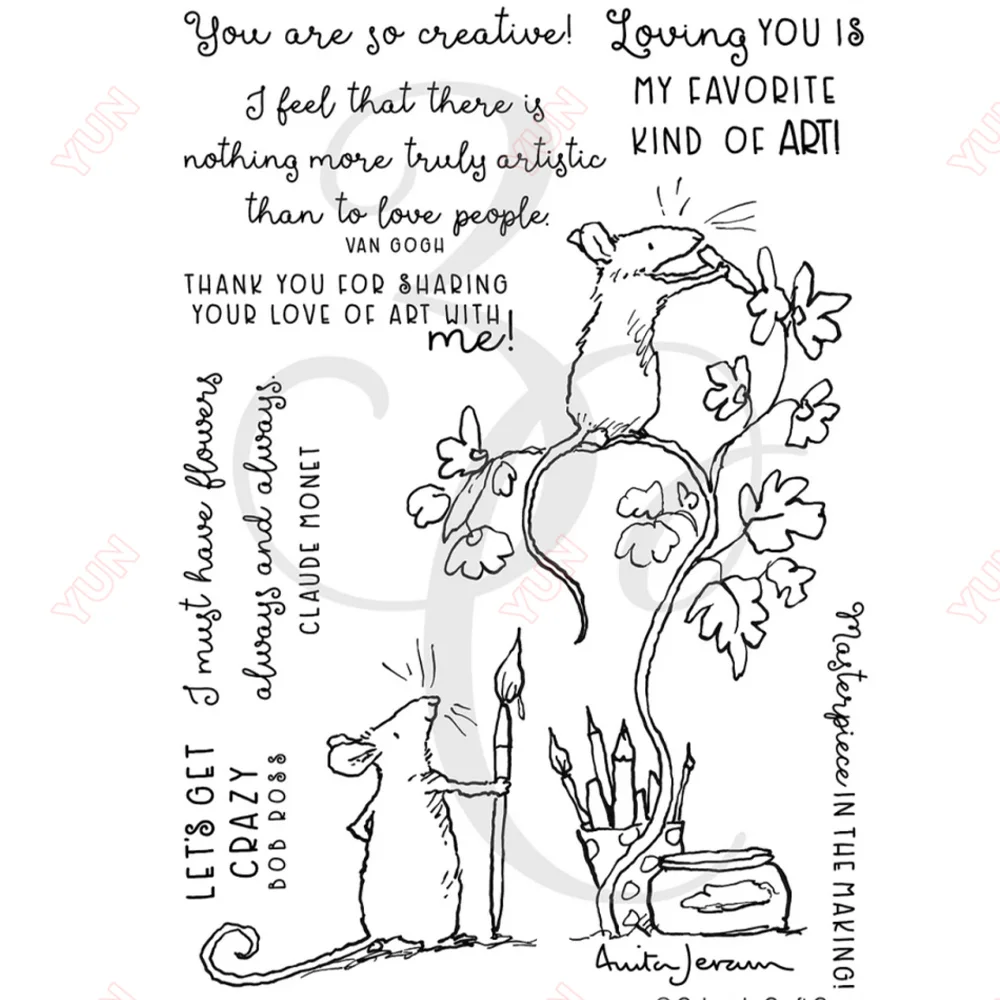 You are so creative!
Loving YOU IS
MY FAVORITE
KIND OF ART!
I feel that there is
nothing more truly artistic
than to love people.
VAN GOGH
THANK YOU FOR SHARING
YOUR LOVE OF ART WITH
me!
I must have flowers
always and always.
CLAUDE MONET
LET'S GET
CRAZY
BOB ROSS
Masterpiece IN THE MAKING!
Anita Jeram
YUN
YUN
YUN
YUN
YUN
YUN